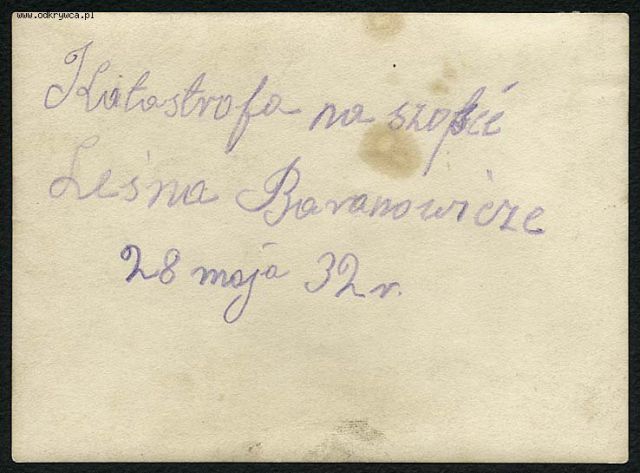 www.odkrywca.pl
Katastrofa na szosie
Leśna Baranowicze
28 maja 32 r.